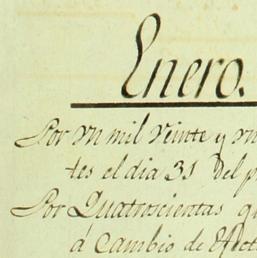 Enero.
Por un mil veinte y un
tes el dia 31 del p
Por Quatrocientas q
á cambio de efect